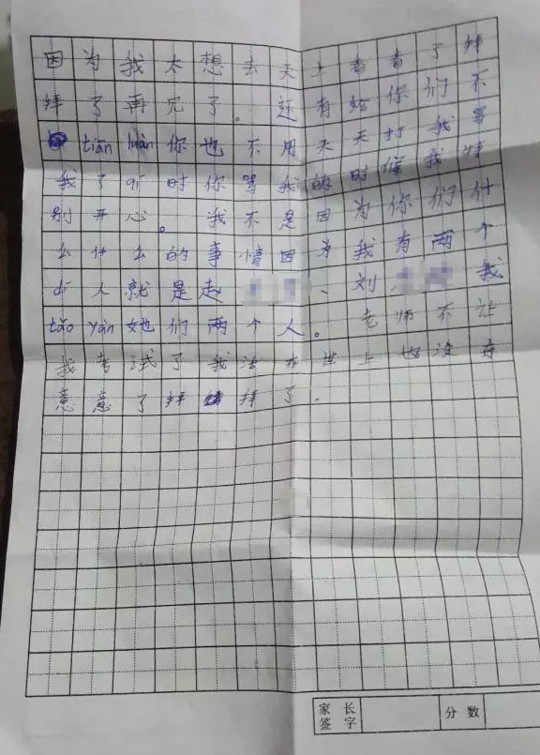 因为我太想去天上看看了拜
拜了再见了。还有给你们不
tiān luàn你也不用天天打我骂
我了打时你骂我的时候我特
别开心。我不是因为你们什
么什么的事情因为我有两个
人就是赵、刘我
tǎo yàn她们两个人。老师不让
我考试了我活在世上也没有
意意了拜拜了.
家长
签字
分数